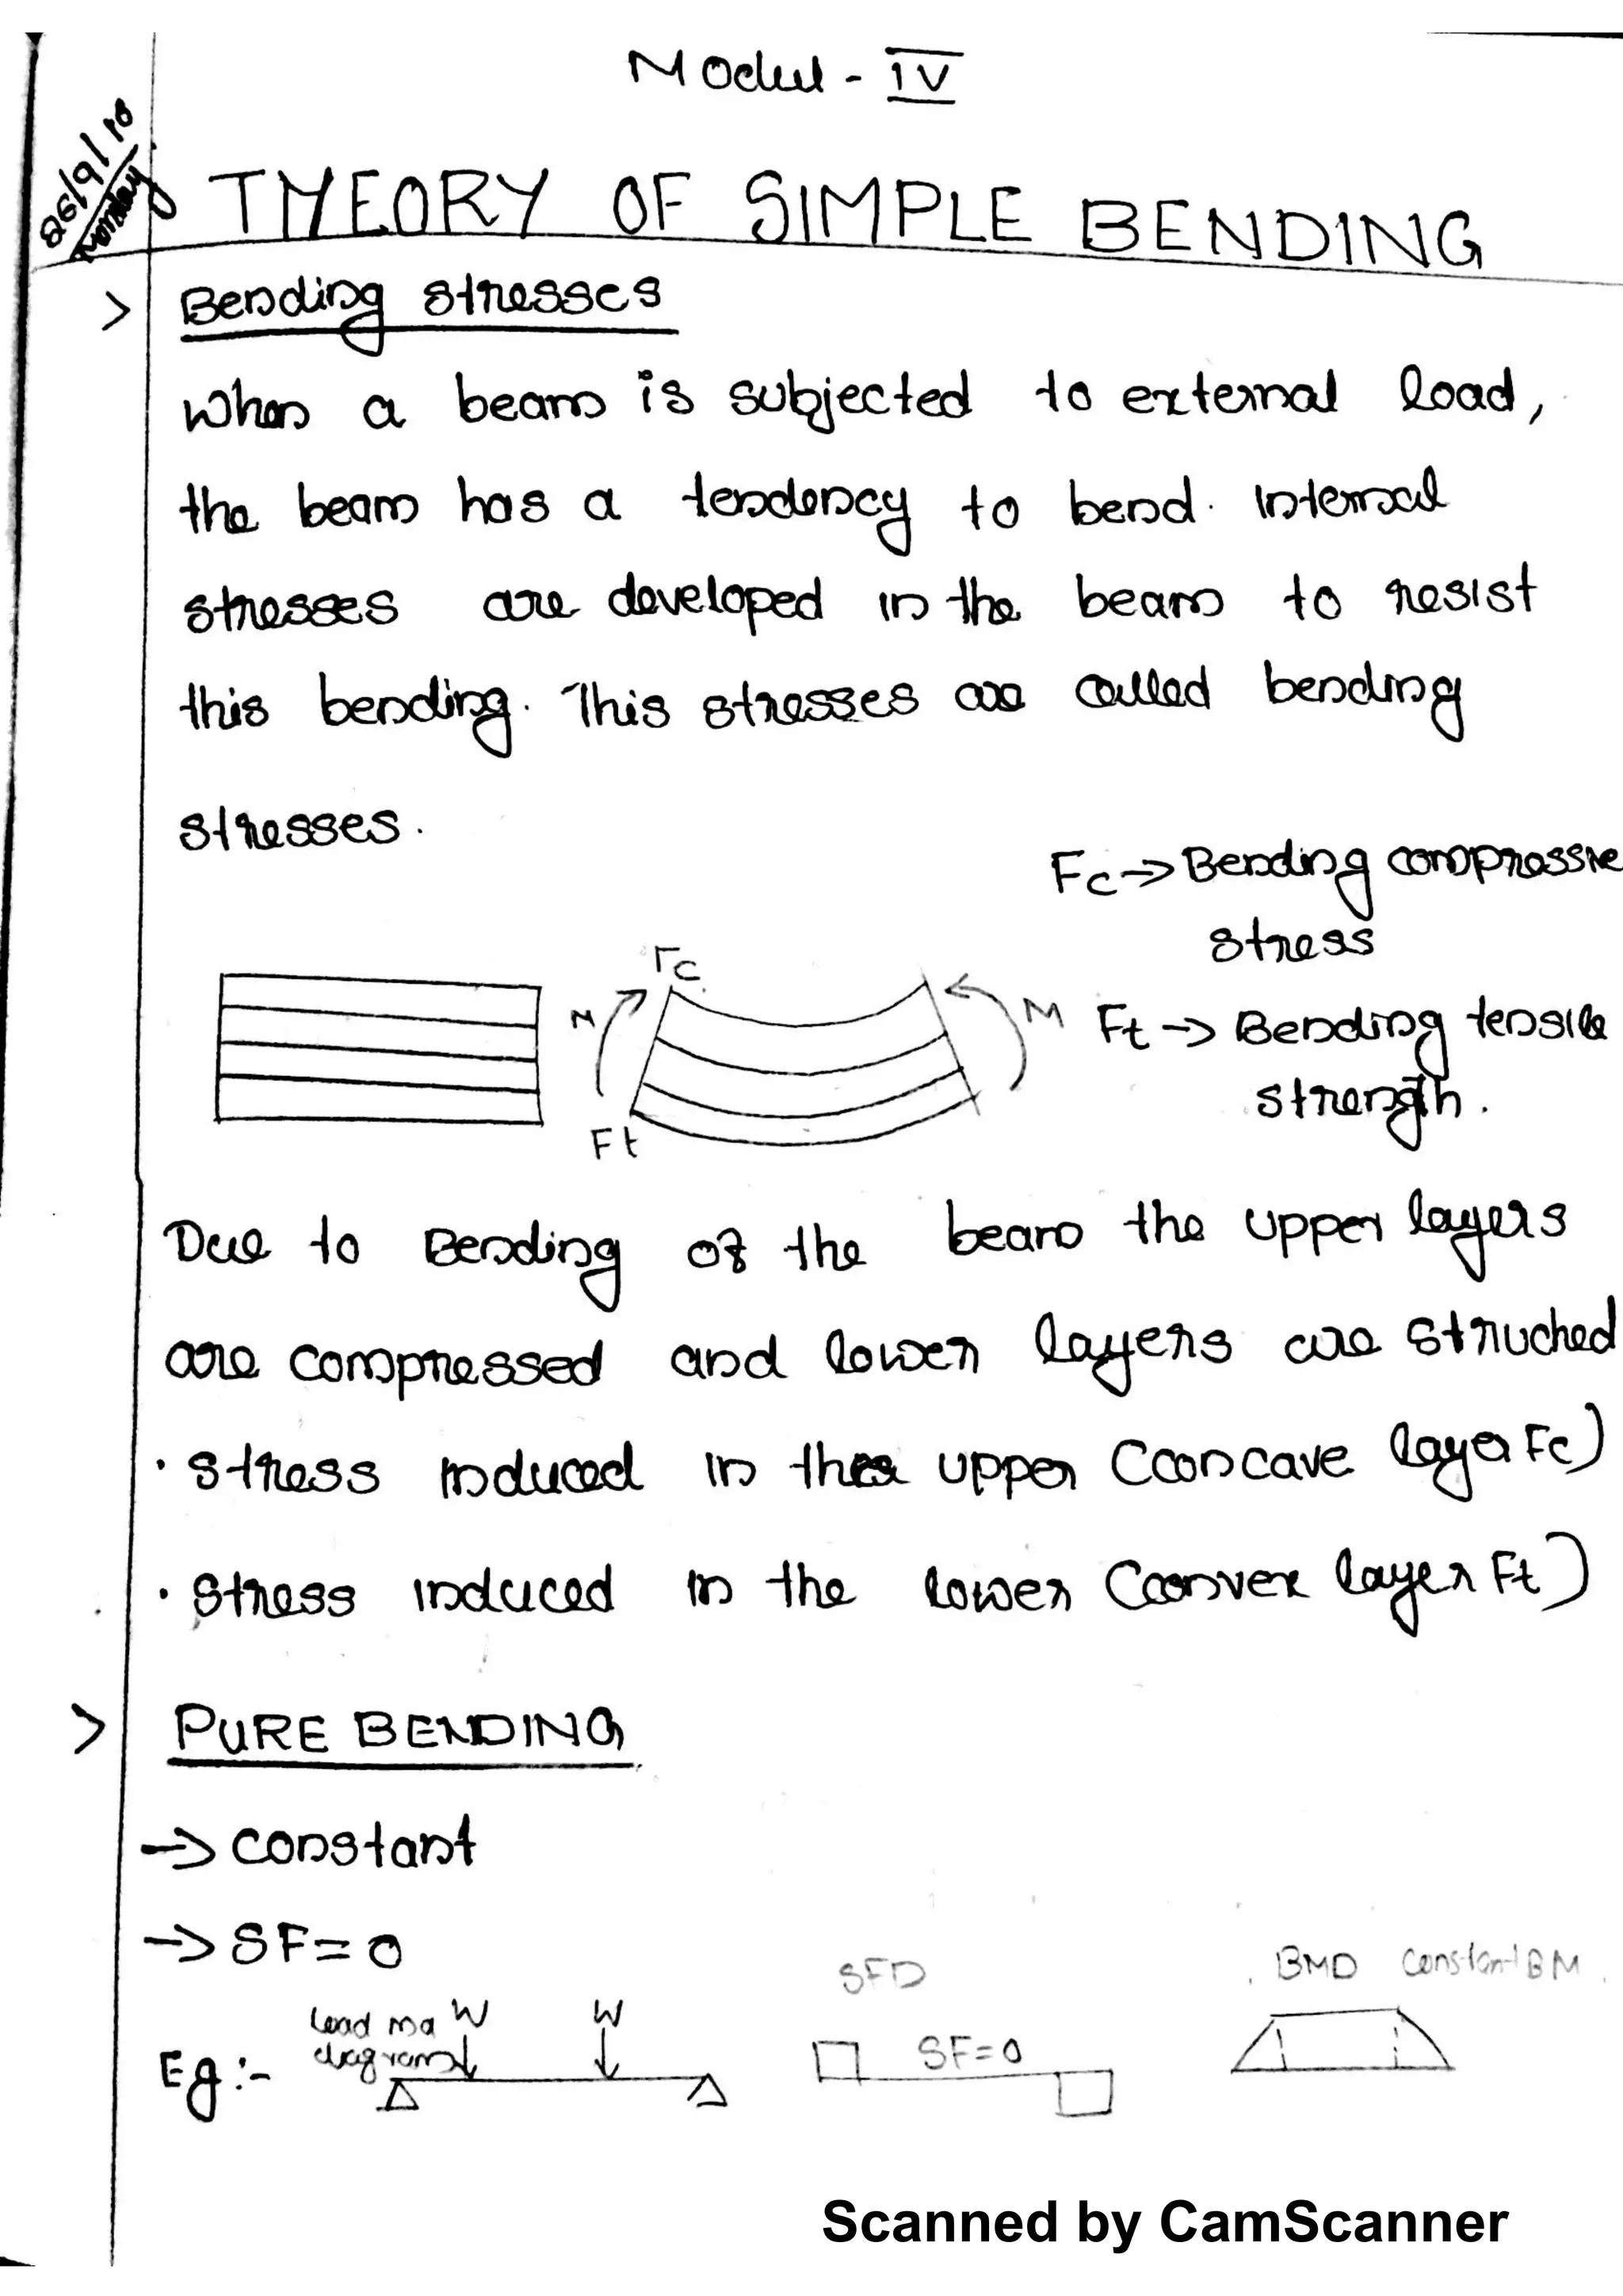 Modul - IV
THEORY OF SIMPLE BENDING
> Bending stresses
When a beam is subjected to external load,
the beam has a tendency to bend. Internal
stresses are developed in the beam to resist
this bending. This stresses are called bending
stresses.
Fc -> Bending compressive
stress
Fc
M
M
Ft -> Bending tensile
strength.
Ft
Due to Bending of the beam the upper layers
are compressed and lower layers are struched
· stress induced in the upper (concave layer Fc)
· stress induced in the lower (convex layer Ft)
> PURE BENDING
-> constant
-> SF=0
SFD
BMD constant BM
Eg:-
load
diagram
W
W
SF=0
Scanned by CamScanner